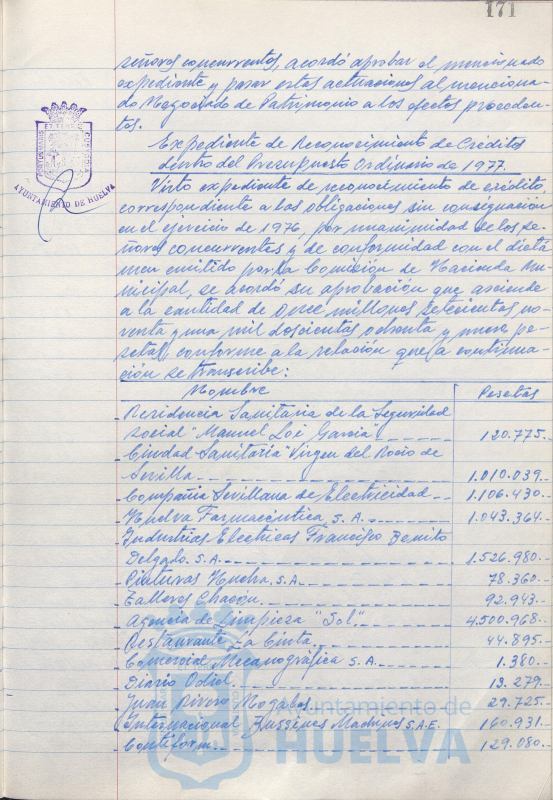 171
señores concurrentes, acordó aprobar el mencionado
expediente y pasar estas actuaciones al menciona-
do Negociado de Patrimonio a los efectos proceden-
tes.
Expediente de Reconocimiento de Créditos
dentro del Presupuesto Ordinario de 1977.
Visto expediente de reconocimiento de crédito,
correspondiente a las obligaciones sin consignación
en el ejercicio de 1976, por unanimidad de los se-
ñores concurrentes y de conformidad con el dicta
men emitido por la Comisión de Hacienda Mu
nicipal, se acordó su aprobación que asciende
a la cantidad de once millones setecientas no-
venta y una mil doscientas ochenta y nueve pe-
setas, conforme a la relación que a continua-
ción se transcribe:
Nombre Pesetas
Residencia Sanitaria de la Seguridad
Social "Manuel Loi García" 120.775.-
Ciudad Sanitaria Virgen del Rocio de
Sevilla 1.010.039.-
Compañía Sevillana de Electricidad 1.106.430.-
Huelva Farmacéutica S.A. 1.043.364.-
Industrias Electricas Francisco Benito
Delgado S.A. 1.526.980.-
Pinturas Huelva, S.A. 78.360.-
Talleres Chacón 92.943.-
Agencia de Limpieza "Sol" 4.500.968.-
Restaurante La Cinta 44.895.-
Comercial Mecanográfica S.A. 1.380.-
Diario Odiel 13.279.-
Juan Rivero Nogales 29.725.-
Internacional Bussines Machines S.A.E. 160.931.-
Contiform 129.080.-
AYUNTAMIENTO DE HUELVA
Ayuntamiento de
HUELVA